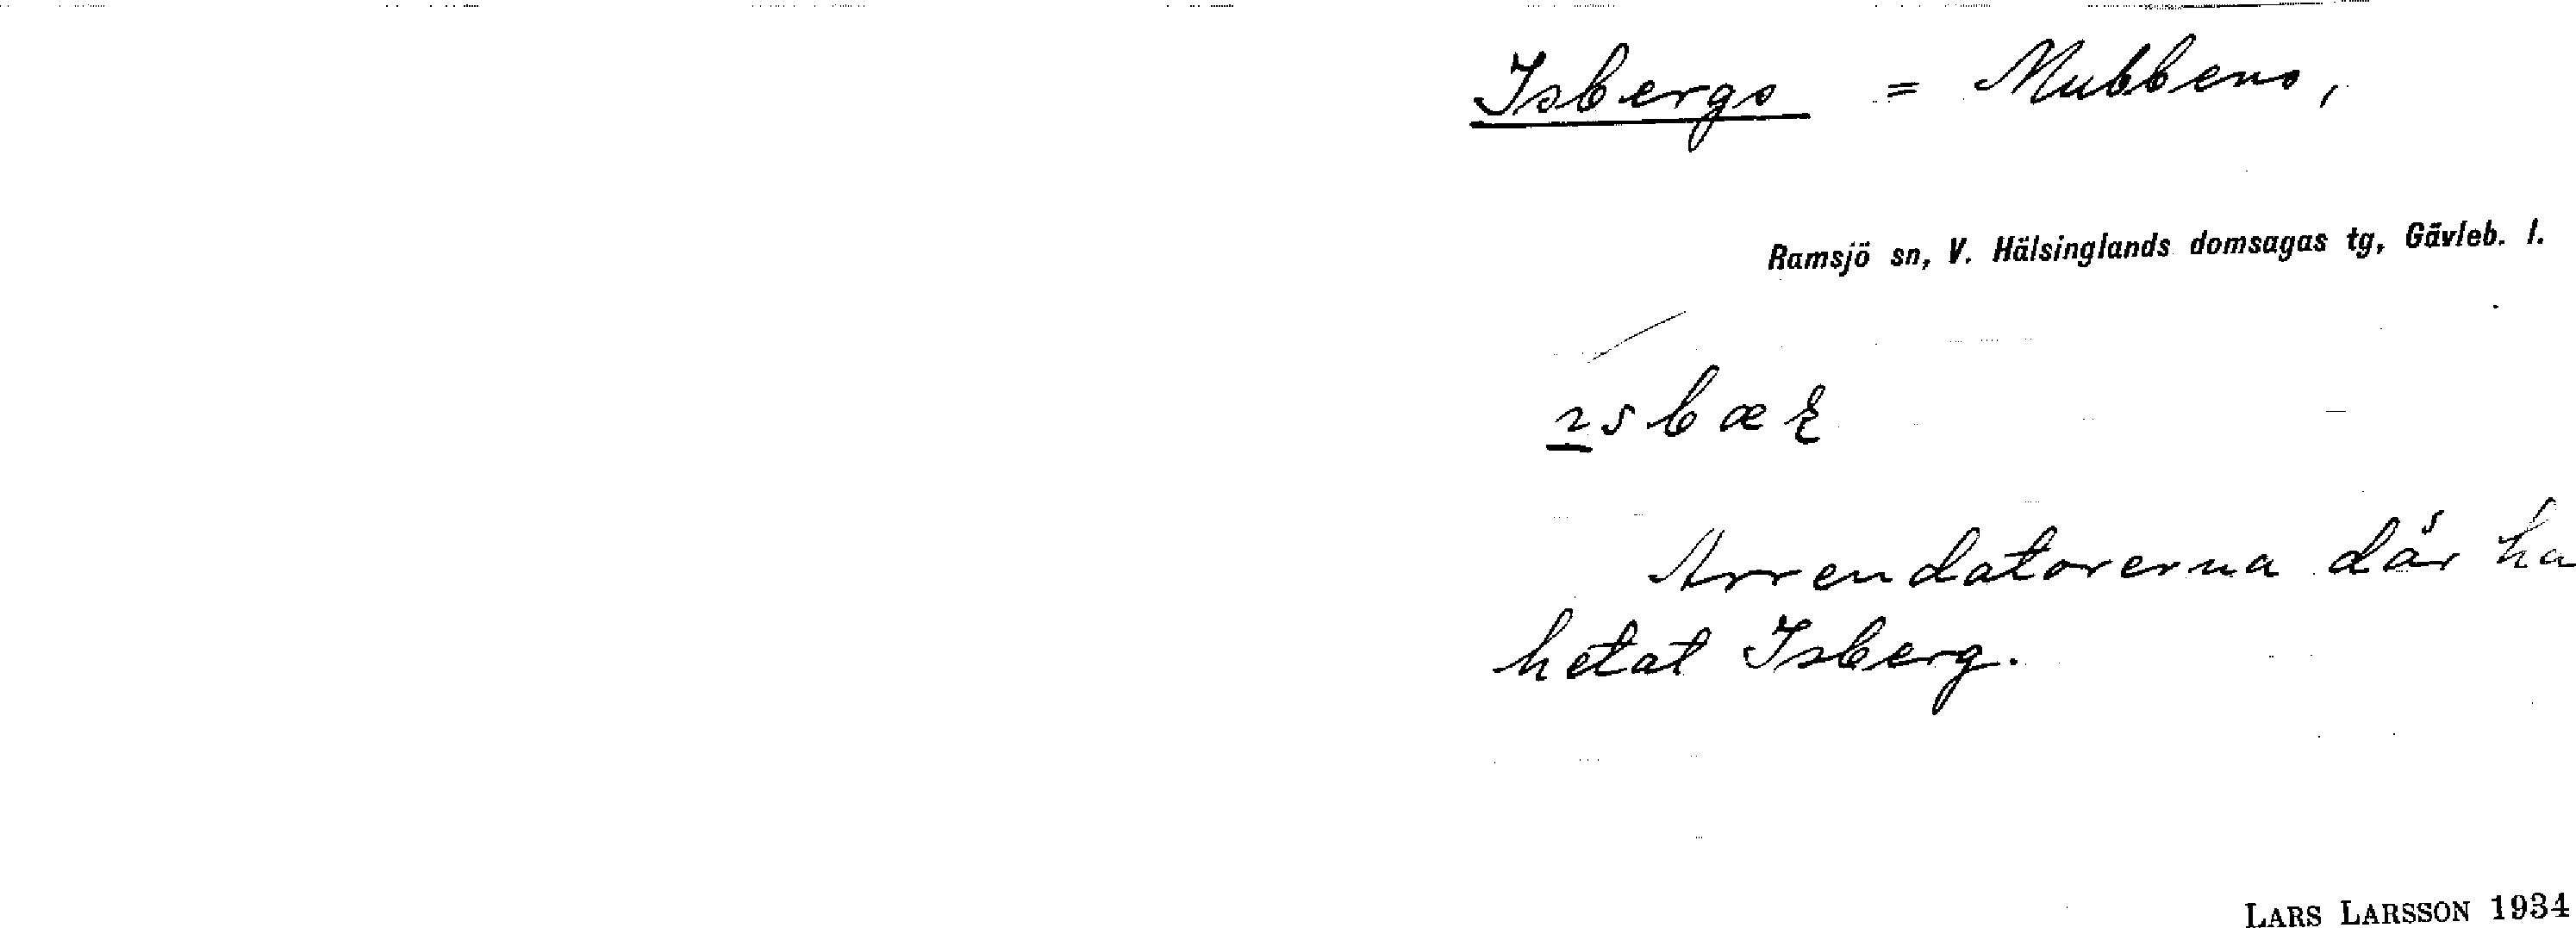 Isbergs = Mubbens,
Ramsjö sn, V. Hälsinglands domsagas tg, Gävleb. l.
Arrendatorerna där ha
hetat Isberg.
LARS LARSSON 1934